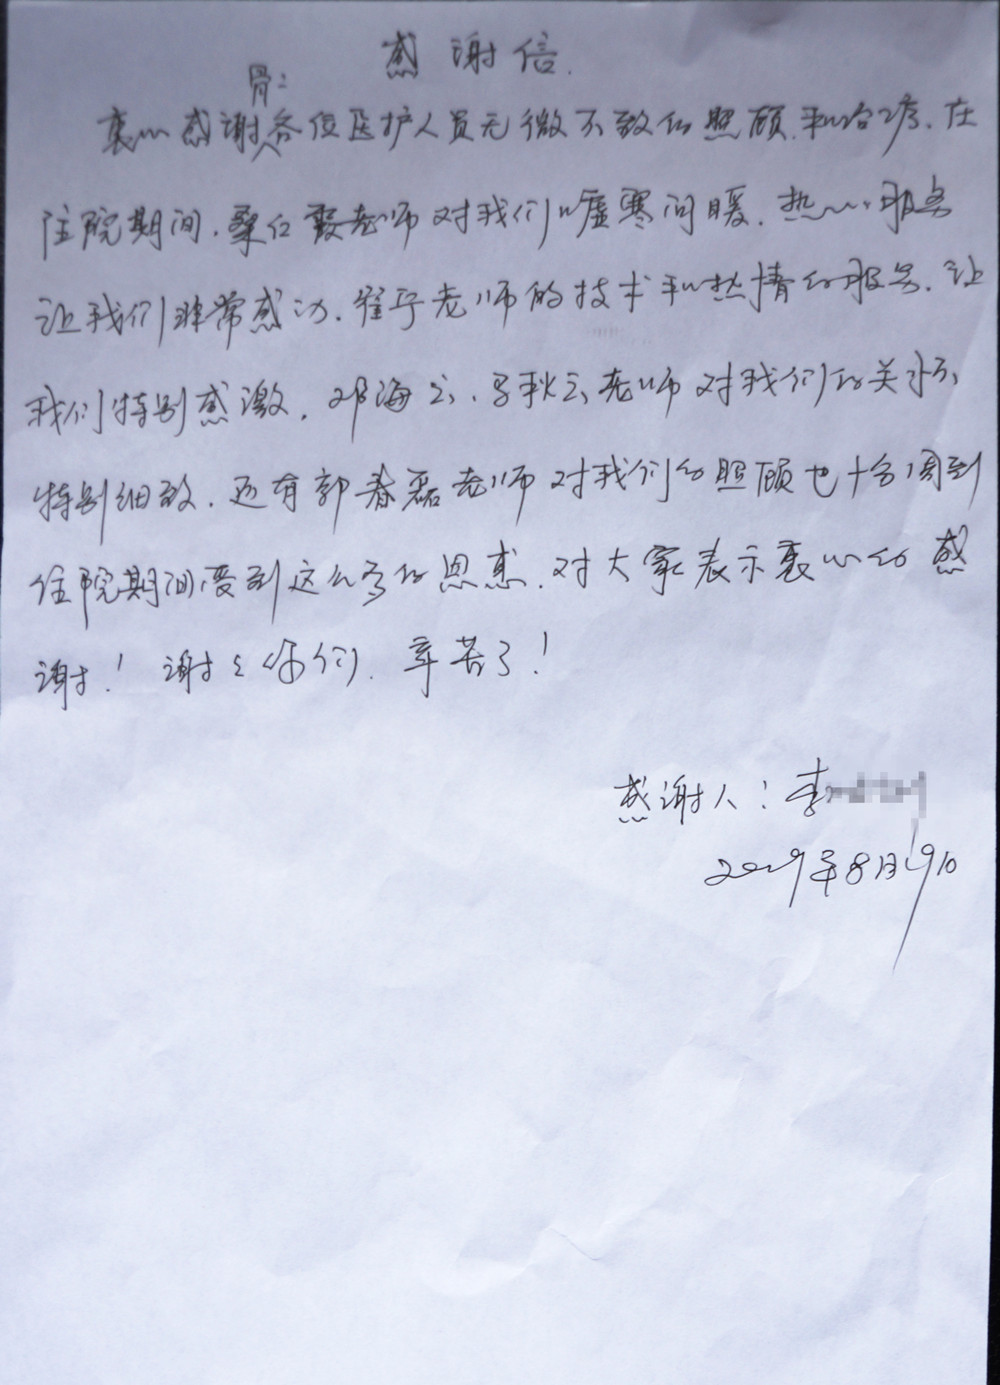 感谢信.
骨二
衷心感谢各位医护人员无微不致的照顾和治疗.在
住院期间.桑红霞老师对我们嘘寒问暖.热心服务
让我们非常感动.崔宁老师的技术和热情的服务.让
我们特别感激.邓海云、马秋云老师对我们的关怀、
特别细致.还有郭春磊老师对我们的照顾也十分周到
住院期间受到这么多的恩惠.对大家表示衷心的感
谢!谢谢你们.辛苦了!
感谢人:李
2019年8月19日